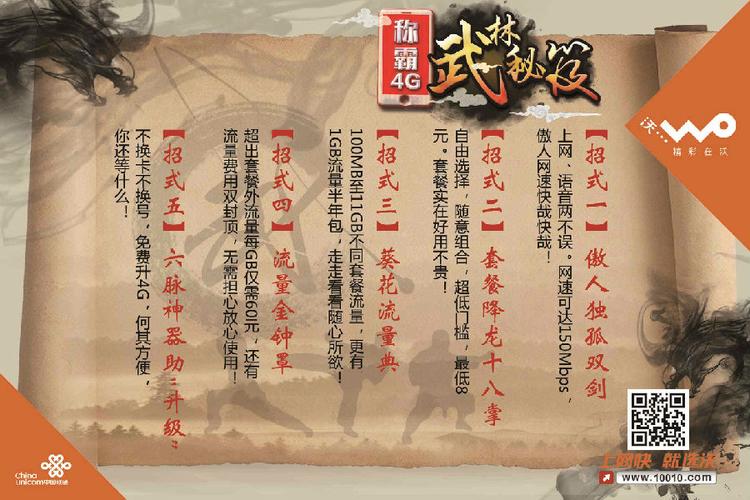 称霸4G
武林秘笈
沃…
wo
精彩在沃
【招式一】傲人独孤双剑
上网、语音两不误。网速可达150Mbps，
傲人网速快哉快哉！
【招式二】套餐降龙十八掌
自由选择，随意组合，超低门槛，最低8
元。套餐实在好用不贵！
【招式三】葵花流量典
100MB至11GB不同套餐流量，更有
1GB流量半年包，走走看看随心所欲！
【招式四】流量金钟罩
超出套餐外流量每GB仅需60元，还有
流量费用双封顶，无需担心放心使用！
【招式五】六脉神器助“升级”
不换卡不换号，免费升4G，何其方便，
你还等什么！
China
unicom中国联通
上网快 就选沃
www.10010.com